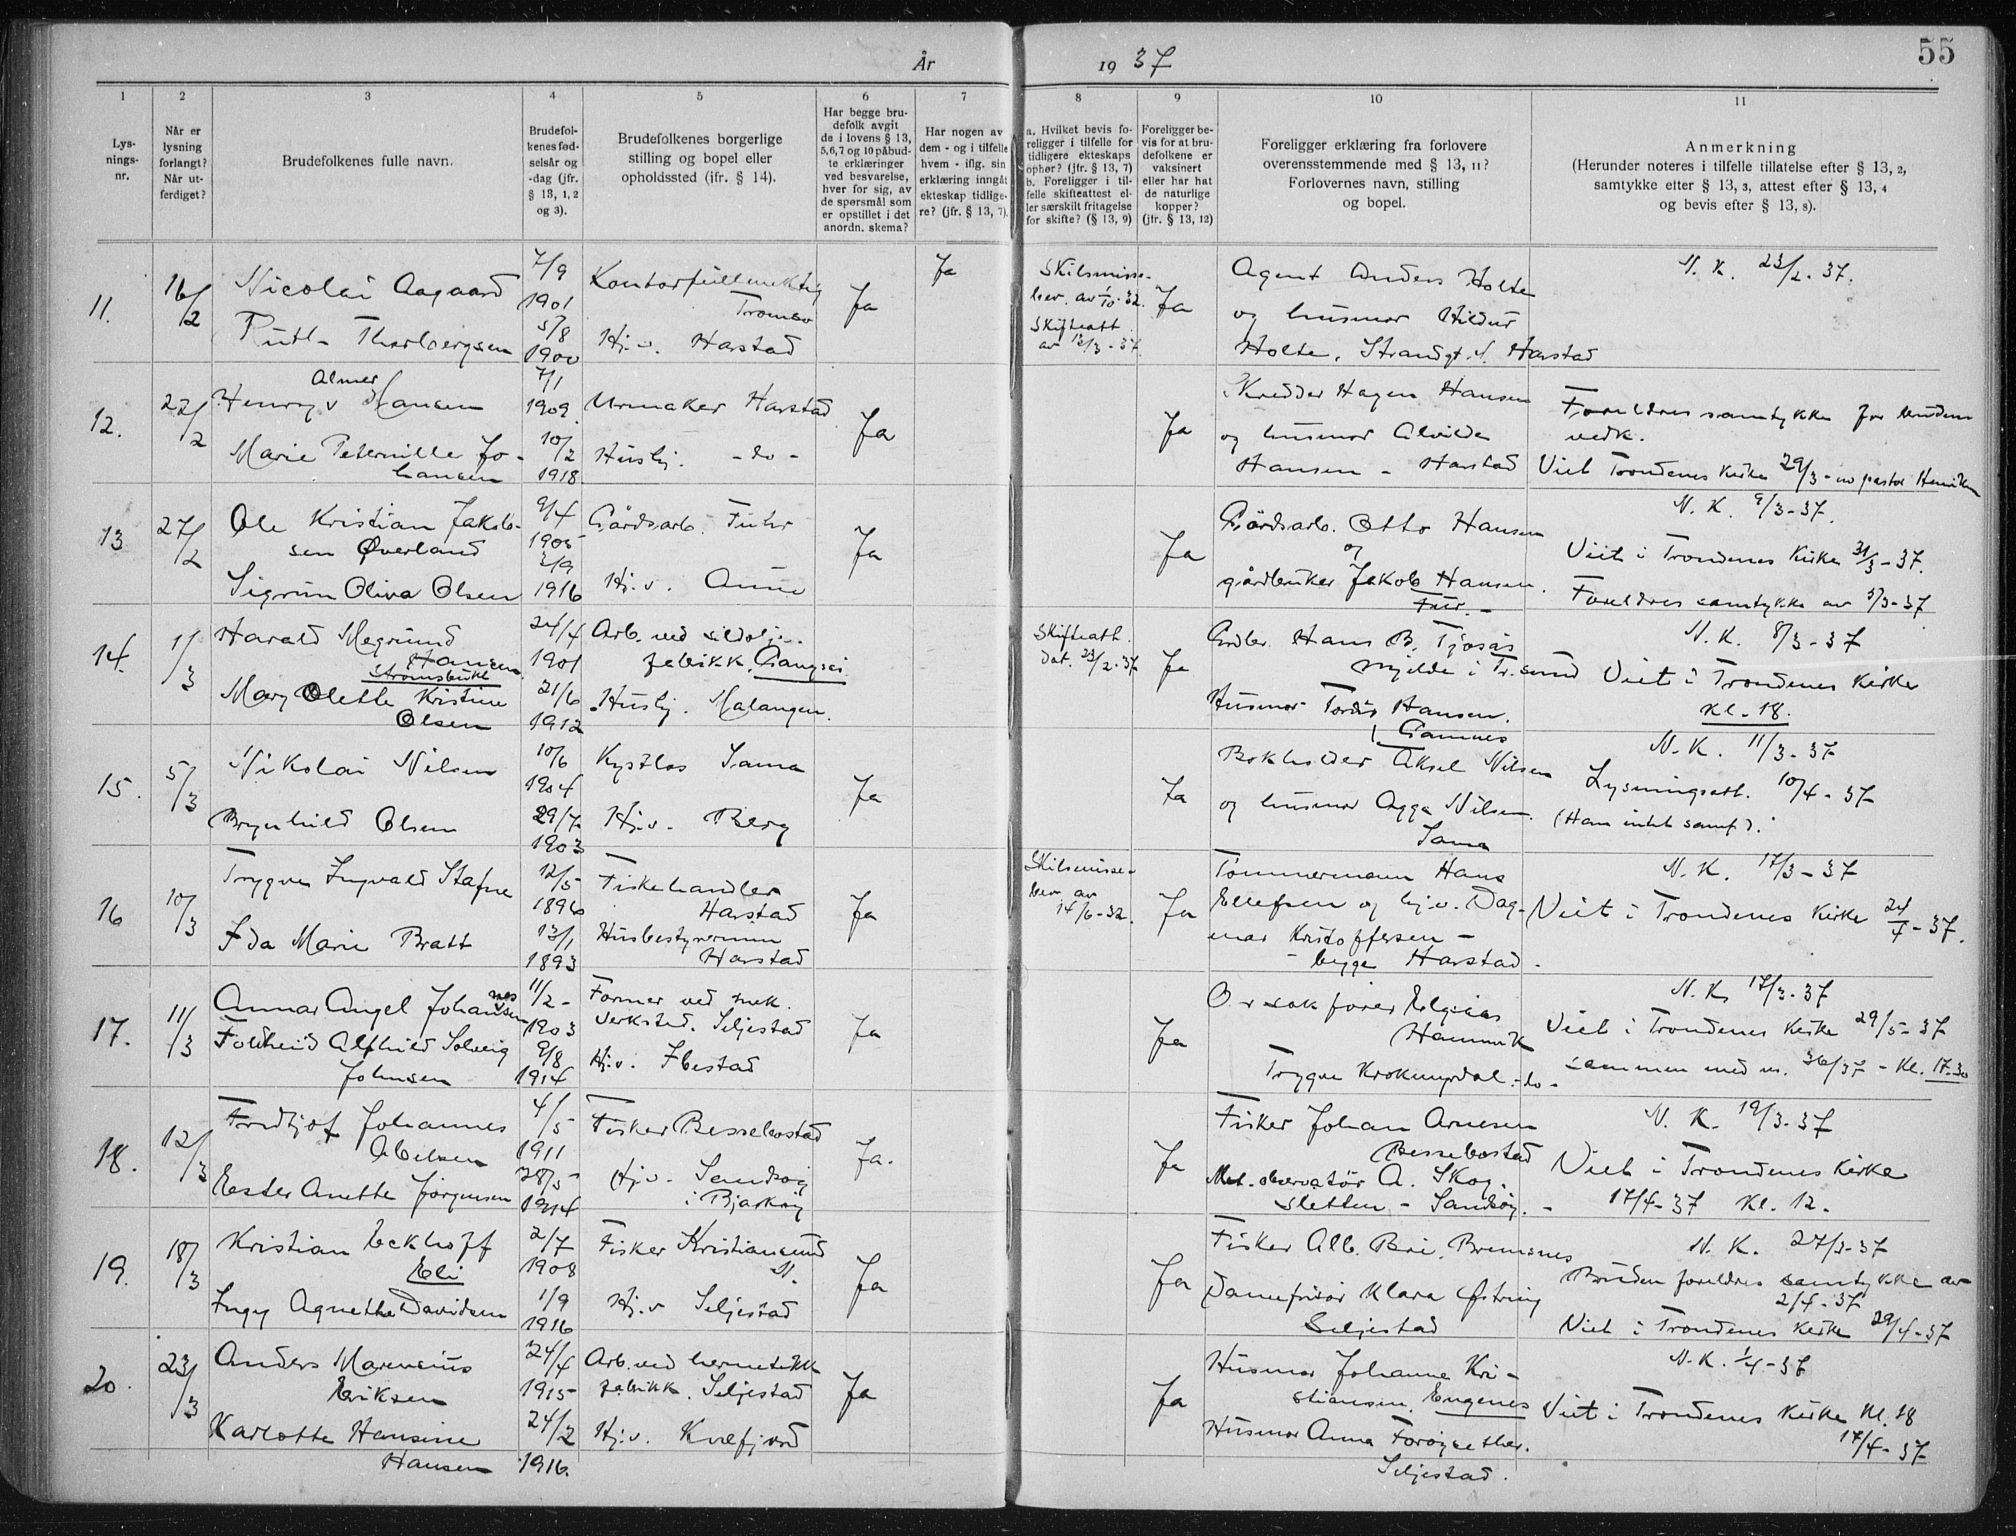 55
År 1937
1
2
3
4
5
6
7
8
9
10
11
Lys-
nings-
nr.
Når er
lysning
forlangt?
Når ut-
ferdiget?
Brudefolkenes fulle navn.
Brudefol-
kenes fød-
selsår og
-dag (jfr.
§ 13, 1, 2
og 3).
Brudefolkenes borgerlige
stilling og bopel eller
opholdssted (ifr. § 14).
Har begge bru-
defolk avgit
de i lovens § 13,
5,6,7 og 10 påbud-
te erklæringer
ved besvarelse,
hver for sig, av
de spørsmål som
er opstillet i det
anordn. skema?
Har nogen av
dem - og i tilfelle
hvem - iflg. sin
erklæring inngåt
ekteskap tidlige-
re? (jfr. § 13, 7).
a. Hvilket bevis fo-
religger i tilfelle for
tidligere ekteskaps
ophør? (jfr. § 13, 7)
b. Foreligger i til-
felle skifteattest el-
ler særskilt fritagelse
for skifte? (§ 13, 9)
Foreligger be-
vis for at bru-
defolkene er
vaksinert
eller har hat
de naturlige
kopper?
(jfr. § 13, 12)
Foreligger erklæring fra forlovere
overensstemmende med § 13, 11?
Forlovernes navn, stilling
og bopel.
Anmerkning
(Herunder noteres i tilfelle tillatelse efter § 13, 2,
samtykke etter § 13, 3, attest efter § 13, 4
og bevis efter § 13, 8).
11.
16/2
Nicolai Aagaard
Ruth Thorbergsen
7/9
1901
5/8
1900
Kontorfullmektig
Tromsø
Hj.v. Harstad
Ja
Ja
Skilsmisse-
bev. av 1/10-32.
Skifteatt.
av 12/3-37.
Ja
Agent Anders Holte
og husmor Hildur
Holte, Strandgt. N. Harstad
N. K. 23/2-37.
12.
22/2
Almer
Henry v Hansen
Marie Peternille Jo-
hansen
7/1
1909.
10/2
1918
Urmaker Harstad
Husbj. -do-
Ja
Ja
Skredder Hagen Hansen
og husmor Alvilde
Hansen - Harstad
Foreldres samtykke for brudens
vedk.
Viet Trondenes Kirke 29/3-
N. K. 9/3-37.
13
27/2
Ole Kristian Jakob-
sen Øverland
Sigrun Oliva Olsen
9/4
1905
3/9
1916
Gårdsarb.
Hj.v. Aune
Ja
Ja
Gårdsarb. Otto Hansen
og
gårdbruker Jakob Hansen.
Viet i Trondenes Kirke 31/3-37.
Foreldres samtykke av 5/3-37
14.
1/3
Harald Megrund
Hansen
Strømsbukt
Mary Olette Kristine
Olsen
24/4
1901
21/6
1912
Arb. ved sildolje-
fabrikk, Gangsås.
Husbj. Malangen.
Skifteatt.
dat. 23/2-37
Ja
Grdbr. Hans B. Tjosås
Mjelde i Tr.sund
Husmor Tordis Hansen.
Gamnes
N. K. 8/3-37
Viet i Trondenes Kirke
Kl. 18.
15.
5/3
Nikolai Nilsen
Brynhild Olsen
10/6
1904
29/7
1903
Kystlos Sama
Hj.v. Berg
Ja
Ja
Bokholder Aksel Nilsen
og husmor Agga Nilsen.
Sama
N. K. 11/3-37
Lysningsatt. 10/4-37
16
10/3
Trygve Ingvald Stafne
Ida Marie Bratt
12/5
1896
13/1
1893
Fiskehandler
Harstad
Husbestyrerinne
Harstad
Ja
Skilsmisse-
bev. av
14/6-32.
Ja
Tømmermann Hans
Ellefsen og hj.v. Dag-
mar Kristoffersen -
- begge Harstad -
N. K. 17/3-37
Viet i Trondenes Kirke 24/4-37.
17.
11/3
Annar Angel Johannes
sen
Alfhild Solveig
Johnsen
11/2-
1903
9/8
1914
Former ved mek.
verksted. Seljestad
Hj.v. Ibestad
Ja
Ja
O.r. sakfører Elias
Hamnvik
Trygve Krokmyrdal -do-
N. K. 17/3-37
Viet i Trondenes Kirke 29/5-37
sammen med nr. 36/37 - Kl. 17.30
18.
12/3
Fridtjof Johannes
Abelsen
Ester Anette Jørgensen
4/5
1911
28/5-
1914
Fisker Bessebostad
Hj.v. Sandsøy
i Bjarkøy
Ja.
Ja
Fisker Johan Arnesen
Bessebostad
Met.observatør A. Skog-
sletten - Sandsøy. -
N. K. 19/3-37
Viet i Trondenes Kirke
17/4-37 Kl. 12.
19.
18/3
Kristian Eckhoff
Eli
Ingy Agnethe Davidsen
2/7
1908
1/9
1916
Fisker Kristiansund
N.
Hj.v Seljestad
Ja
Ja
Fisker Alb. Bri, Bremsnes
Damefrisør Klara Østring
Seljestad
N. K. 27/3-37
Bruden foreldres samtykke av
2/4-37
Viet i Trondenes Kirke 29/4-37
20.
23/3
Anders Marensius
Eriksen
Karlotte Hansine
Hansen
24/4
1915
24/2
1916.
Arb. ved hermetikk
fabrikk. Seljestad
Hj.v. Kvæfjord
Ja
Ja
Husmor Johanne Kri-
stiansen, Engenes
Husmor Anna
Seljestad.
N. K. 1/4-37
Viet i Trondenes Kirke Kl. 18
17/4-37